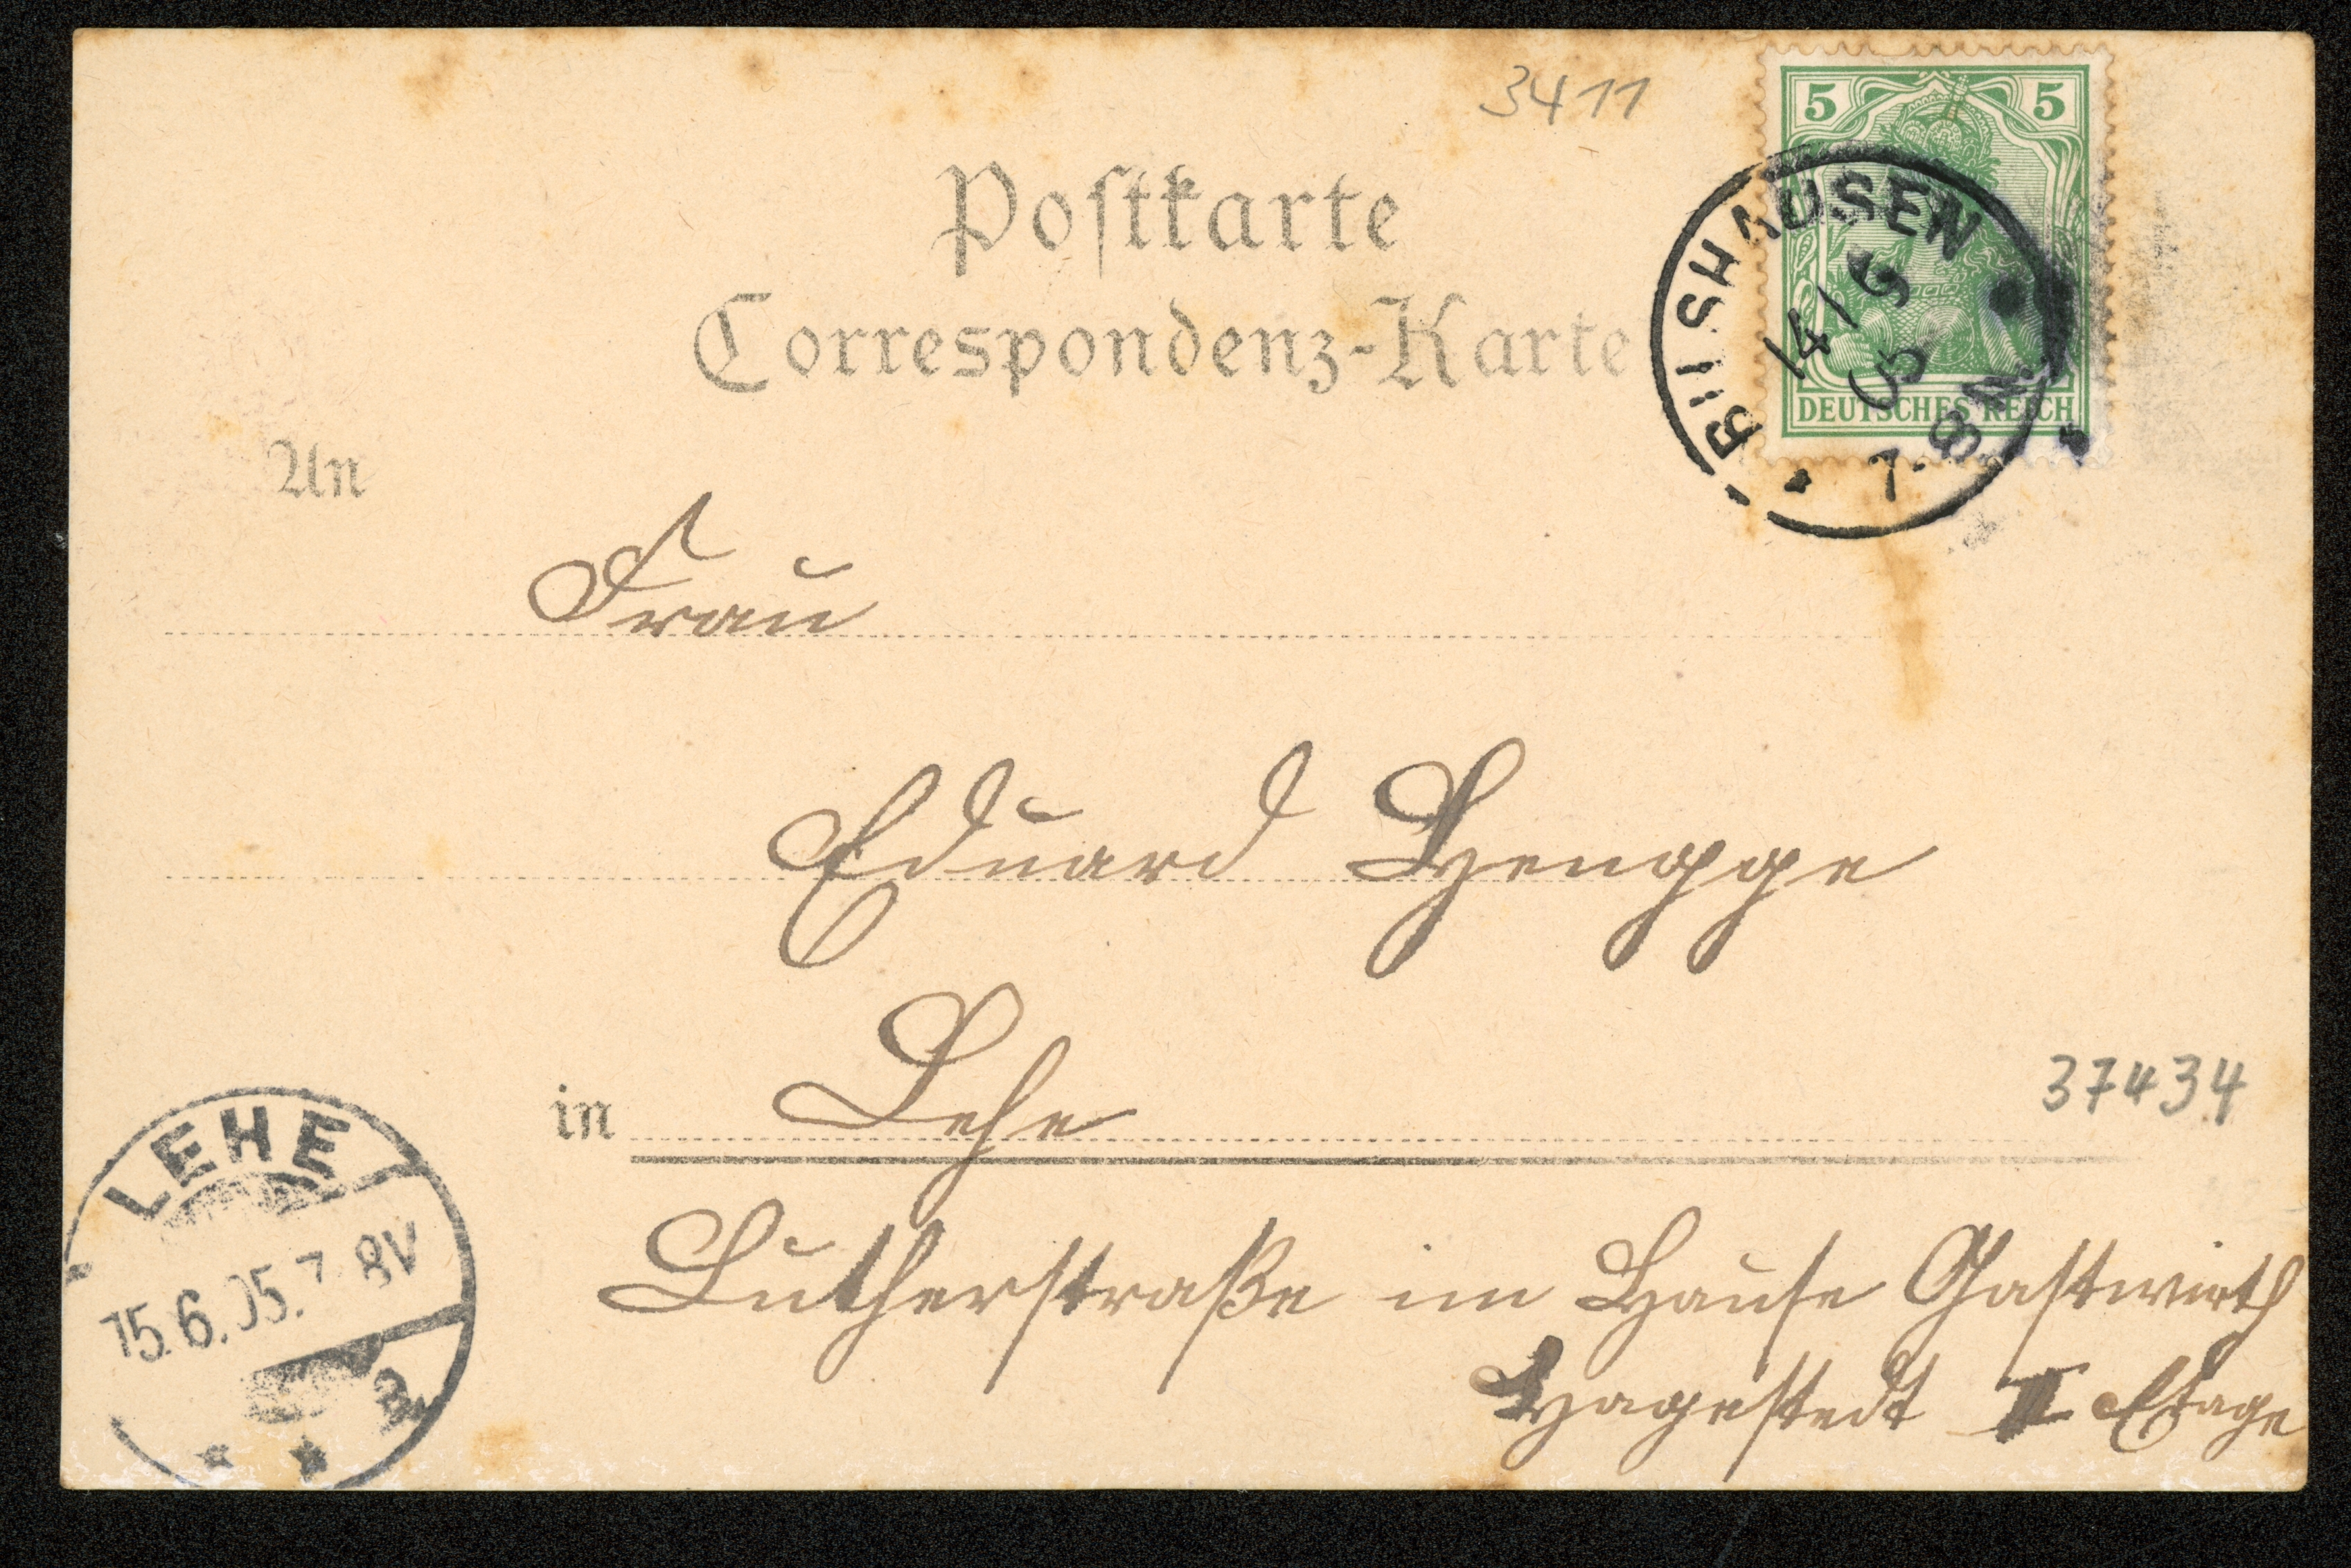 3411
5 5
DEUTSCHES REICH
BILSHAUSEN
14/6
05
7-8N.
Postkarte
Correspondenz-Karte
An
Frau
Eduard Hengge
in Lehe
37434
Lutherstraße im Hause Gastwirth
Hagestedt II Etage
LEHE
15.6.05.7-8V
a